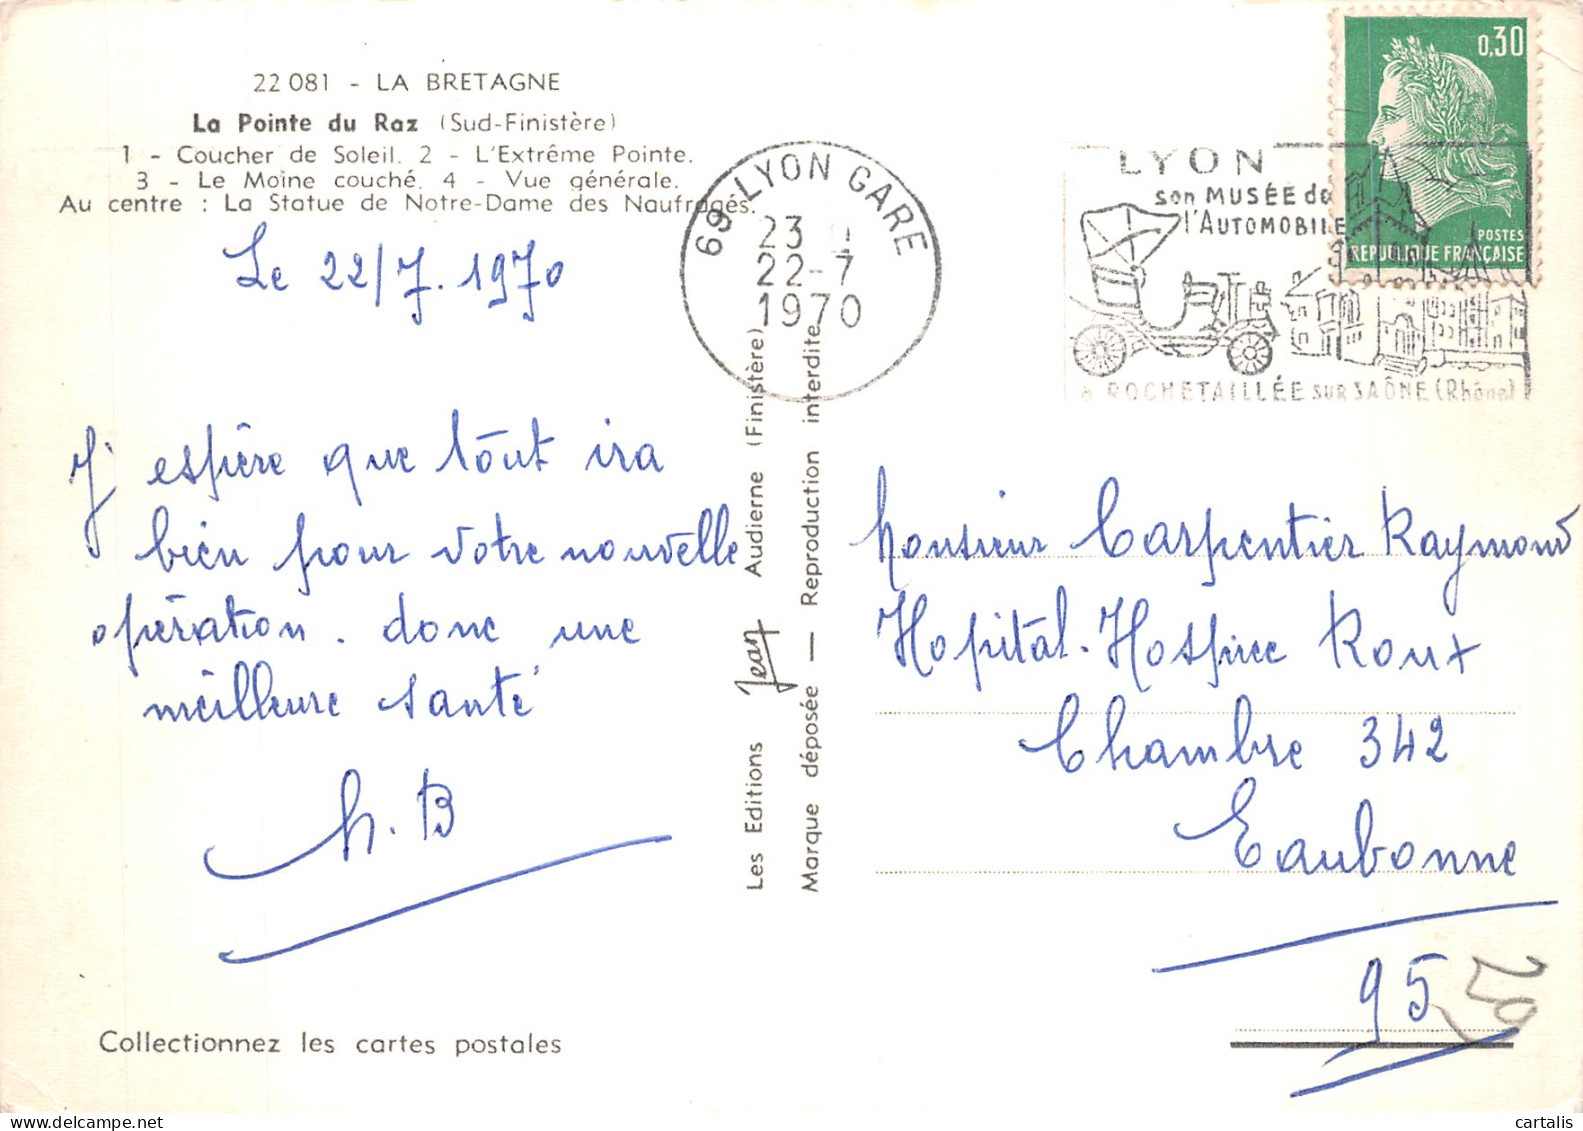 22 081 - LA BRETAGNE
La Pointe du Raz (Sud-Finistère)
1 - Coucher de Soleil. 2 - L'Extrême Pointe.
3 - Le Moine couché. 4 - Vue générale.
Au centre : La Statue de Notre-Dame des Naufragés.
Le 22/7.1970
J'espère que tout ira
bien pour votre nouvelle
opération. donc une
meilleure santé
h. B
Collectionnez les cartes postales
Les Editions Jean Audierne (Finistère)
Marque déposée — Reproduction interdite
69 LYON GARE
23
22-7
1970
LYON
son MUSÉE de
l'AUTOMOBILE
à ROCHETAILLÉE sur SAÔNE (Rhône)
0,30
POSTES
REPUBLIQUE FRANÇAISE
Monsieur Carpentier Raymond
Hopital-Hospice Roux
Chambre 342
Eaubonne
95
29
cartalis